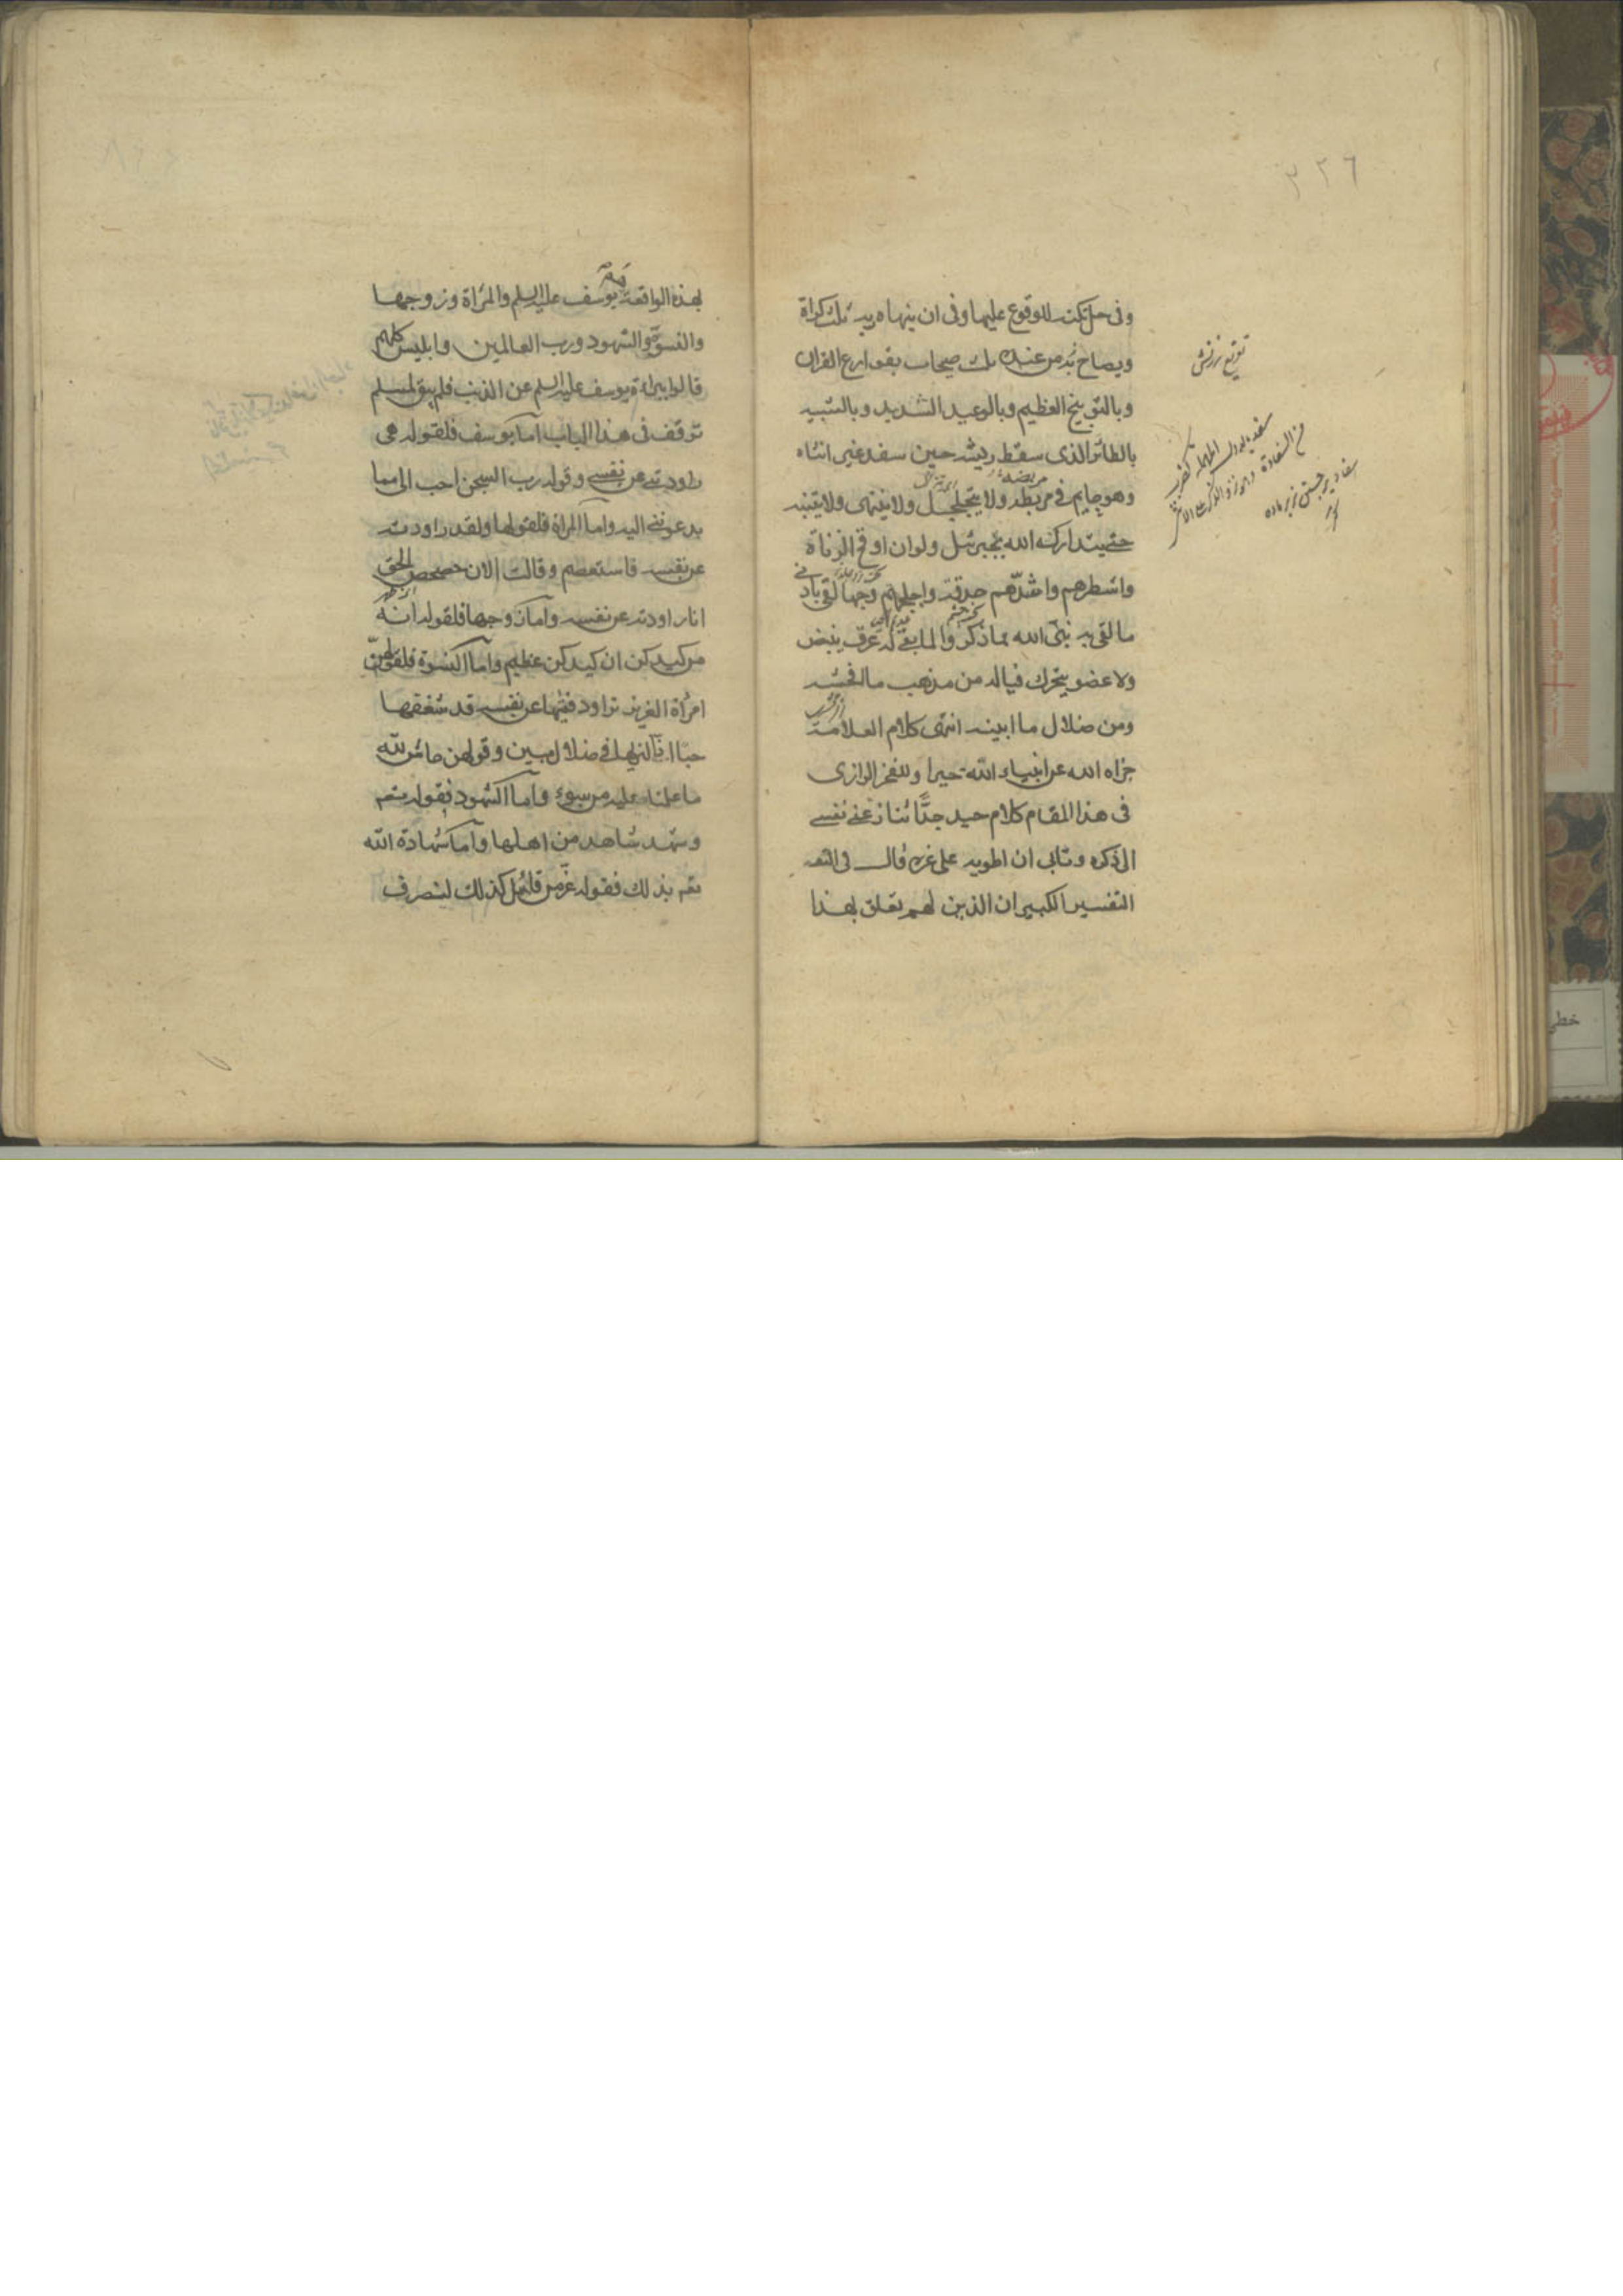 ٣٢٦
وفى حل تكته للوقوع عليها وفى ان ينهاه ربه ثلث كرات
ويصاح به من عنده ثلث صيحات بقوارع القران
وبالتوبيخ العظيم وبالوعيد الشديد وبالتشبيه
بالطائر الذى سقط ريشه حين سفد غير انثاه
وهو جاثم فى مربضه ولا يتحلحل ولا ينتهى ولا يتنبه
حتى يتداركه الله بجبرئيل ولو ان اوقح الزناة
واشطرهم واشدهم حدقة واجلحهم وجها لقى بادنى
ما لقى به نبى الله مما ذكروا لما بقى له عرق ينبض
ولا عضو يتحرك فياله من مذهب ما افحشه
ومن ضلال ما ابينه انتهى كلام العلامة
جزاه الله عن انبياء الله خيرا وللفخر الرازى
فى هذا المقام كلام جيد جدّا تنازعنى نفسى
الى ذكره وتابى ان اطويه على غره قال فى
التفسير الكبير ان الذين لهم تعلق بهذا
تقريع سرزنش
بهذه الواقعة يوسف عليه السلم والمرأة وزوجها
والنسوة والشهود ورب العالمين وابليس كلهم
قالوا ببراءة يوسف عليه السلم عن الذنب فلم يبق لمسلم
توقف فى هذا الباب اما يوسف فلقوله هى
راودتنى عن نفسى وقوله رب السجن احب الى مما
يدعوننى اليه واما المراة فلقولها ولقد راودته
عن نفسه فاستعصم وقالت الان حصحص الحق
انا راودته عن نفسه واما زوجها فلقوله انه
من كيدكن ان كيدكن عظيم واما النسوة فلقولهن
امرأة العزيز تراود فتيها عن نفسه قد شغفها
حبّا انا لنريها فى ضلال مبين وقولهن حاش لله
ما علمنا عليه من سوء واما الشهود فقوله تعم
وشهد شاهد من اهلها واما شهادة الله
تعم بذلك فقوله عز من قائل كذلك لنصرف